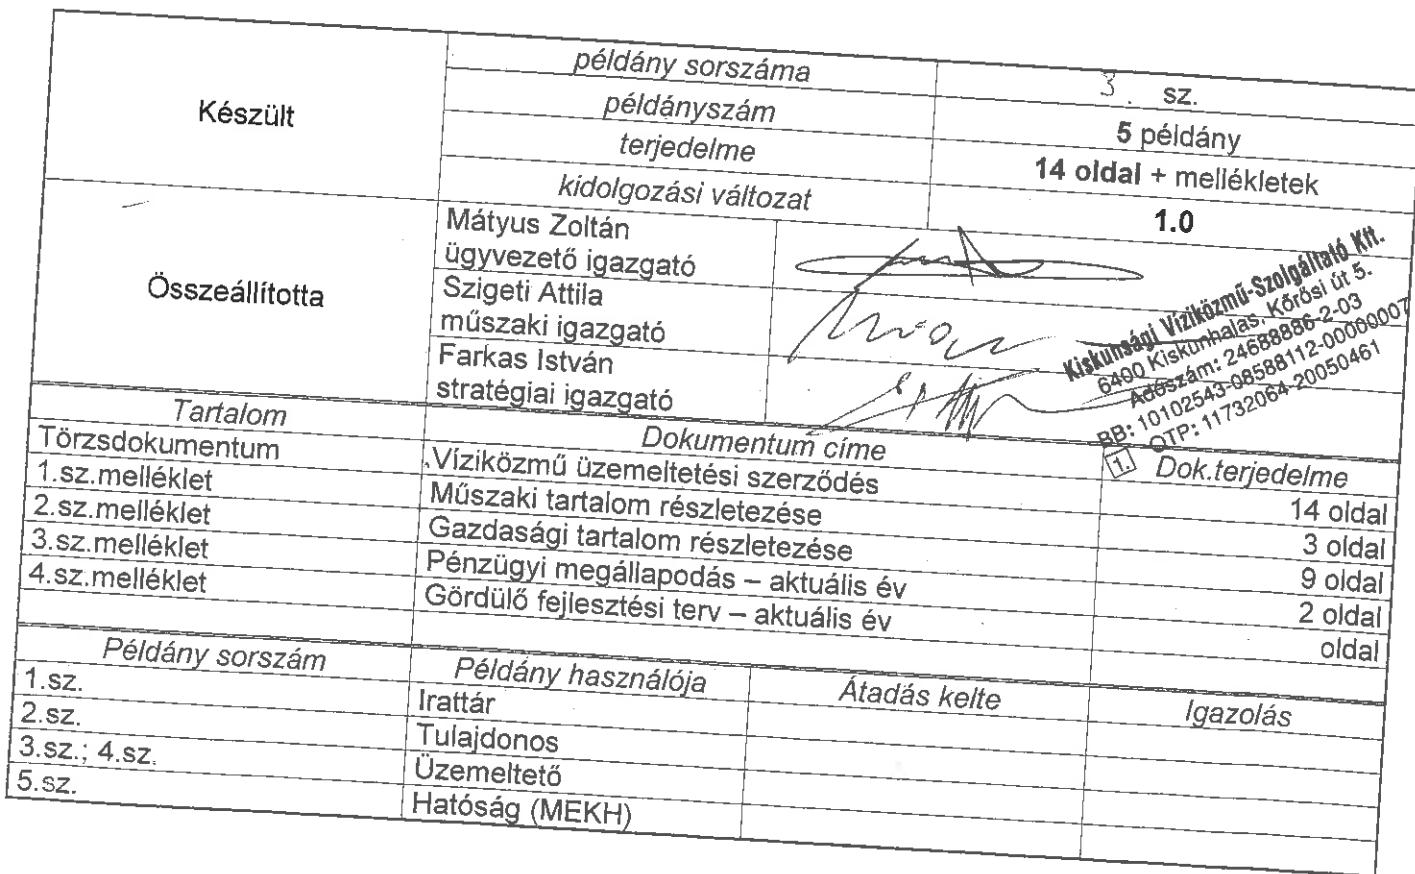 Készült
példány sorszáma
3. sz.
példányszám
5 példány
terjedelme
14 oldal + mellékletek
kidolgozási változat
1.0
Összeállította
Mátyus Zoltán
ügyvezető igazgató
Szigeti Attila
műszaki igazgató
Farkas István
stratégiai igazgató
Kiskunsági Víziközmű-Szolgáltató Kft.
6400 Kiskunhalas, Kőrösi út 5.
Adószám: 24688886-2-03
BB: 10102543-08588112-00000007
OTP: 11732064-20050461
1.
Tartalom Dokumentum címe Dok.terjedelme
Törzsdokumentum Víziközmű üzemeltetési szerződés 14 oldal
1.sz.melléklet Műszaki tartalom részletezése 3 oldal
2.sz.melléklet Gazdasági tartalom részletezése 9 oldal
3.sz.melléklet Pénzügyi megállapodás – aktuális év 2 oldal
4.sz.melléklet Gördülő fejlesztési terv – aktuális év oldal
Példány sorszám Példány használója Átadás kelte Igazolás
1.sz. Irattár
2.sz. Tulajdonos
3.sz.; 4.sz. Üzemeltető
5.sz. Hatóság (MEKH)